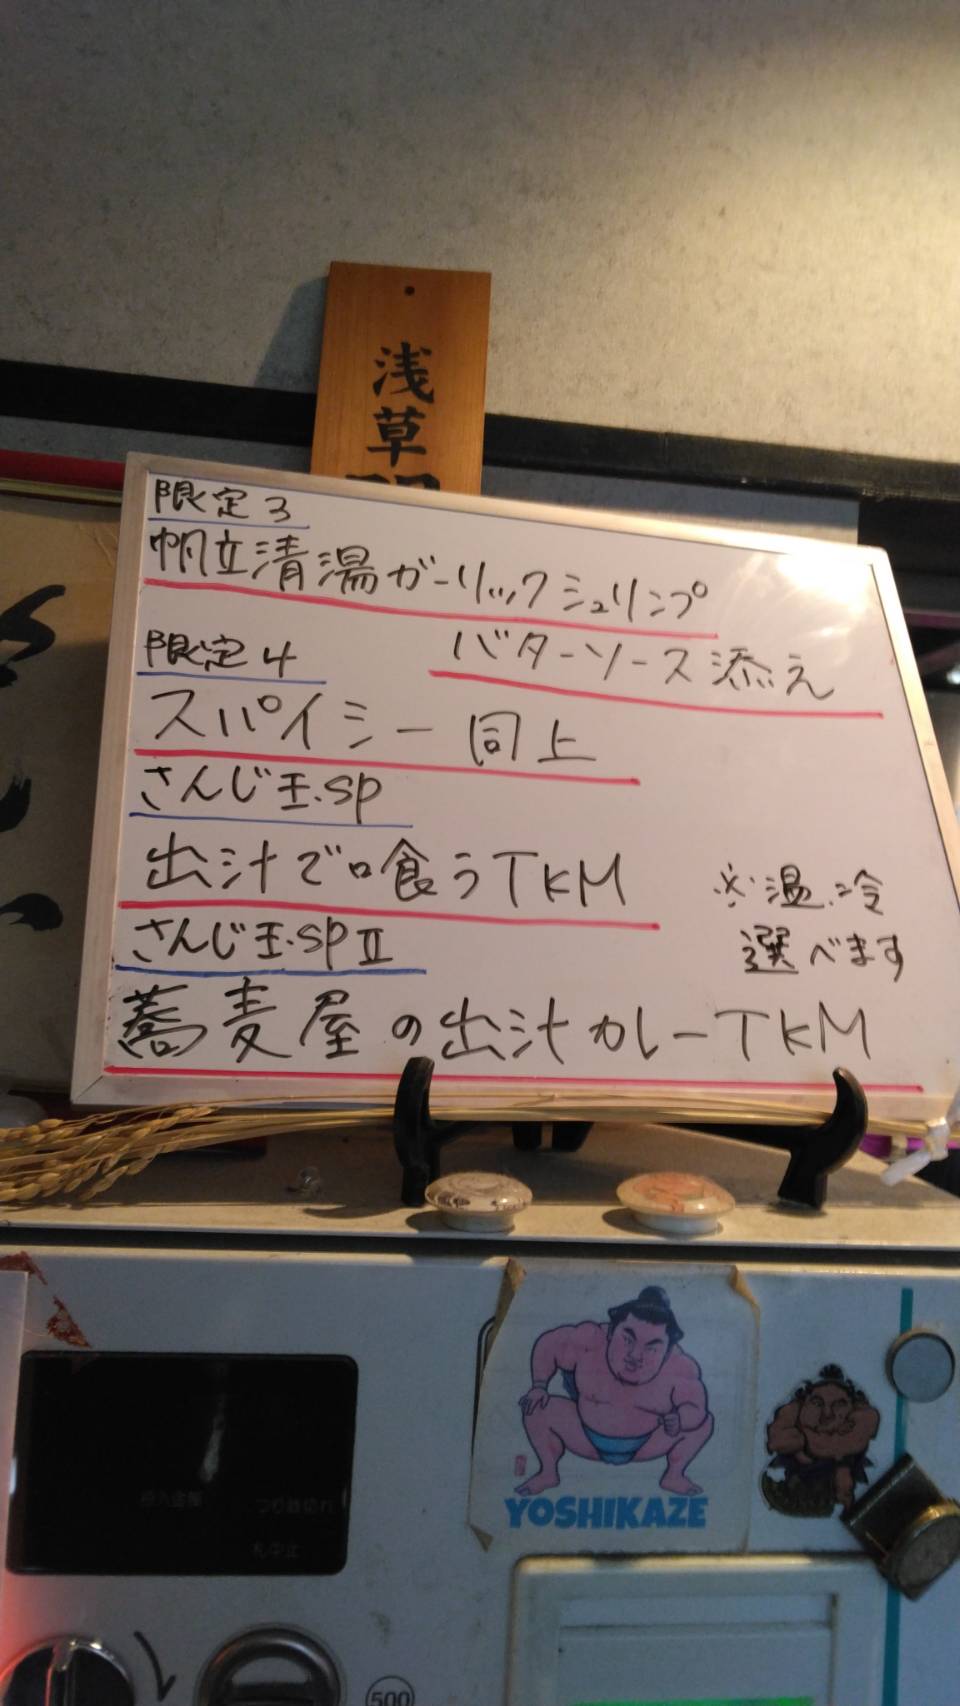 浅草
限定3
帆立清湯ガーリックシュリンプ
バターソース添え
限定4
スパイシー同上
さんじ玉.SP
出汁で喰うTKM
※温.冷
選べます
さんじ玉.SPⅡ
蕎麦屋の出汁カレーTKM
YOSHIKAZE
つり銭切れ
札中止
500